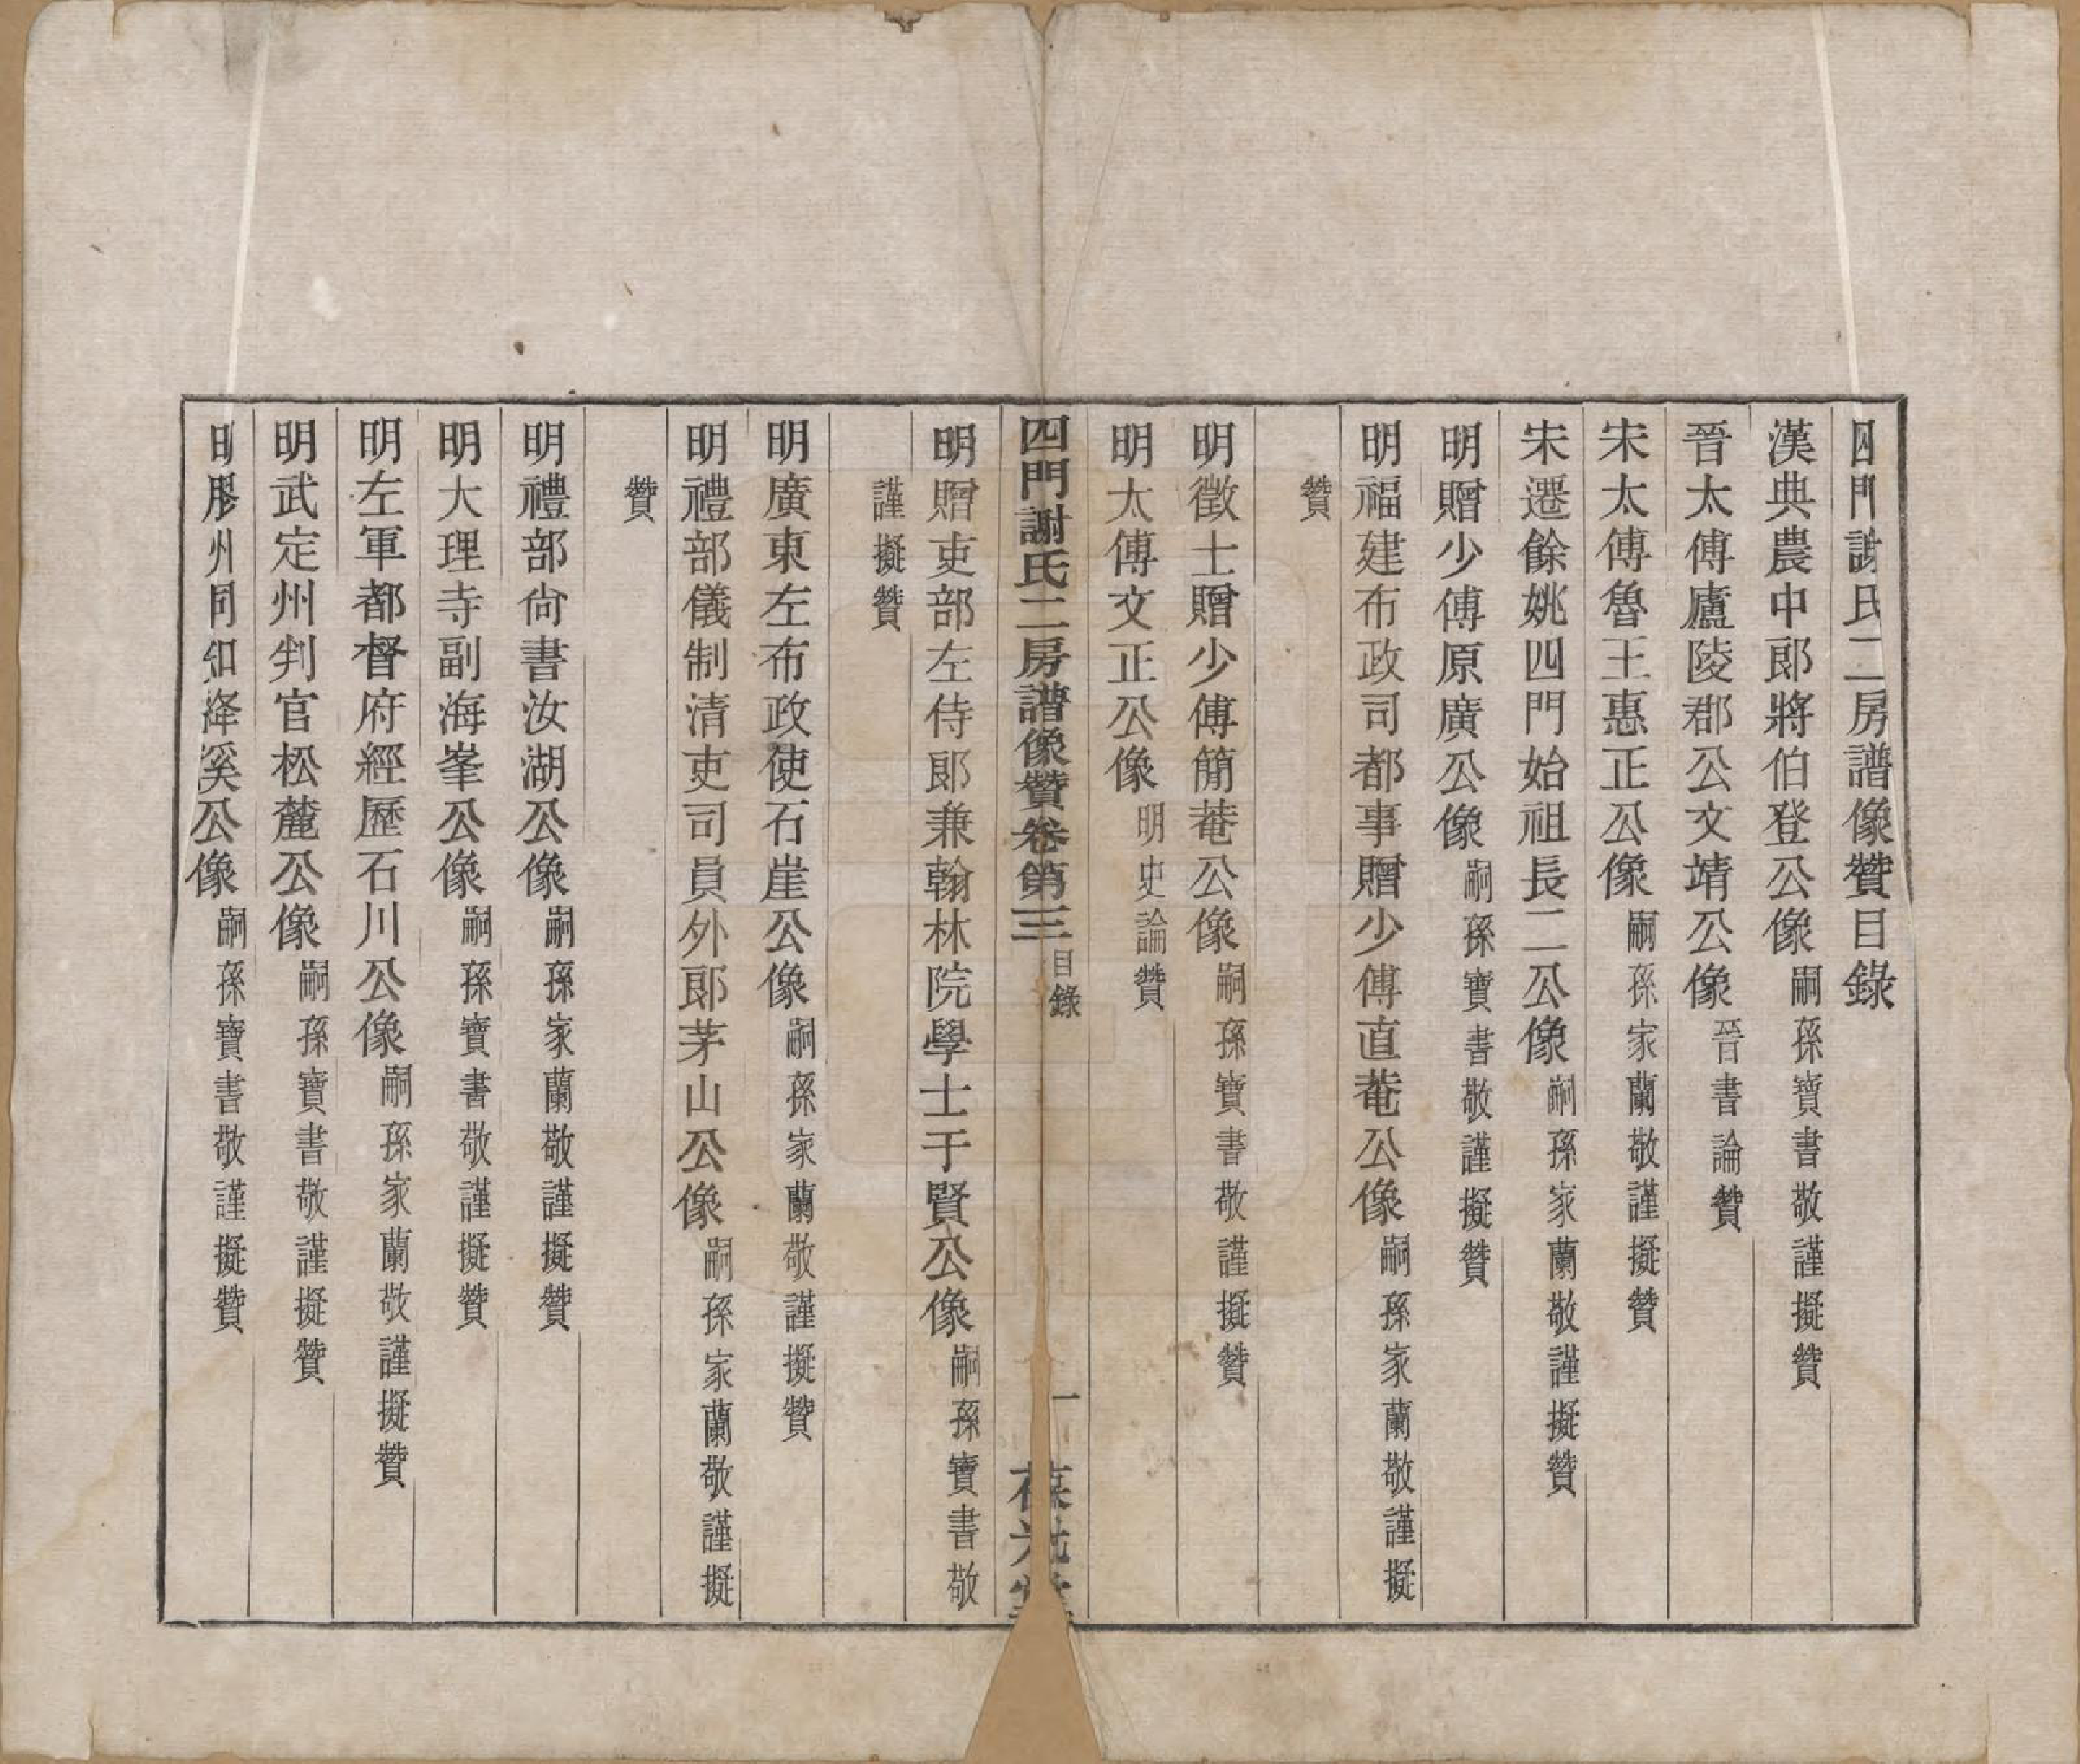 四門謝氏二房譜像贊目錄
漢典農中郎將伯登公像嗣孫寶書敬謹擬贊
晉太傅廬陵郡公文靖公像晉書論贊
宋太傅魯王惠正公像嗣孫家蘭敬謹擬贊
宋遷餘姚四門始祖長二公像嗣孫家蘭敬謹擬贊
明贈少傅原廣公像嗣孫寶書敬謹擬贊
明福建布政司都事贈少傅直菴公像嗣孫家蘭敬謹擬
贊
明徵士贈少傅簡菴公像嗣孫寶書敬謹擬贊
明太傅文正公像明史論贊
四門謝氏二房譜像贊卷第三目錄 一 葆光堂
明贈吏部左侍郎兼翰林院學士于賢公像嗣孫寶書敬
謹擬贊
明廣東左布政使石崖公像嗣孫家蘭敬謹擬贊
明禮部儀制清吏司員外郎茅山公像嗣孫家蘭敬謹擬
贊
明禮部尙書汝湖公像嗣孫家蘭敬謹擬贊
明大理寺副海峯公像嗣孫寶書敬謹擬贊
明左軍都督府經歷石川公像嗣孫家蘭敬謹擬贊
明武定州判官松麓公像嗣孫寶書敬謹擬贊
明膠州同知絳溪公像嗣孫寶書敬謹擬贊